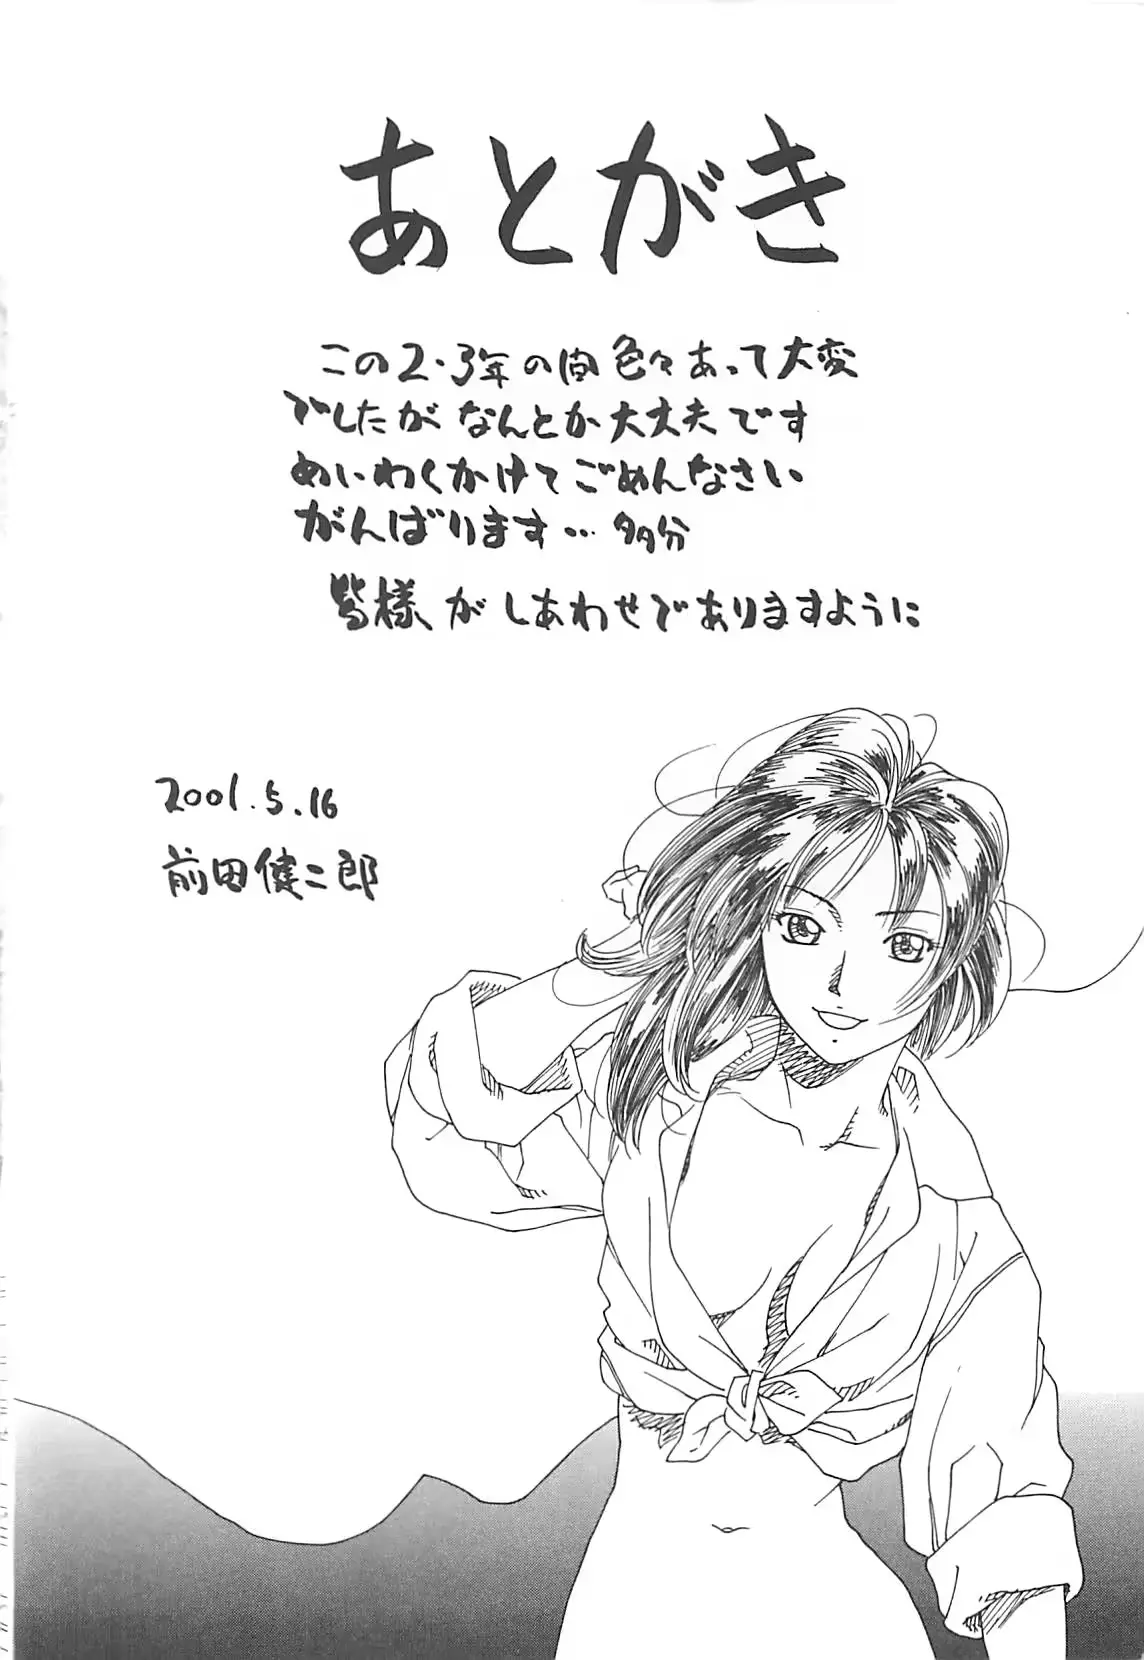 あとがき
この2・3年の間色々あって大変
でしたがなんとか大丈夫です
めいわくかけてごめんなさい
がんばります…多分
皆様がしあわせでありますように
2001.5.16
前田健二郎